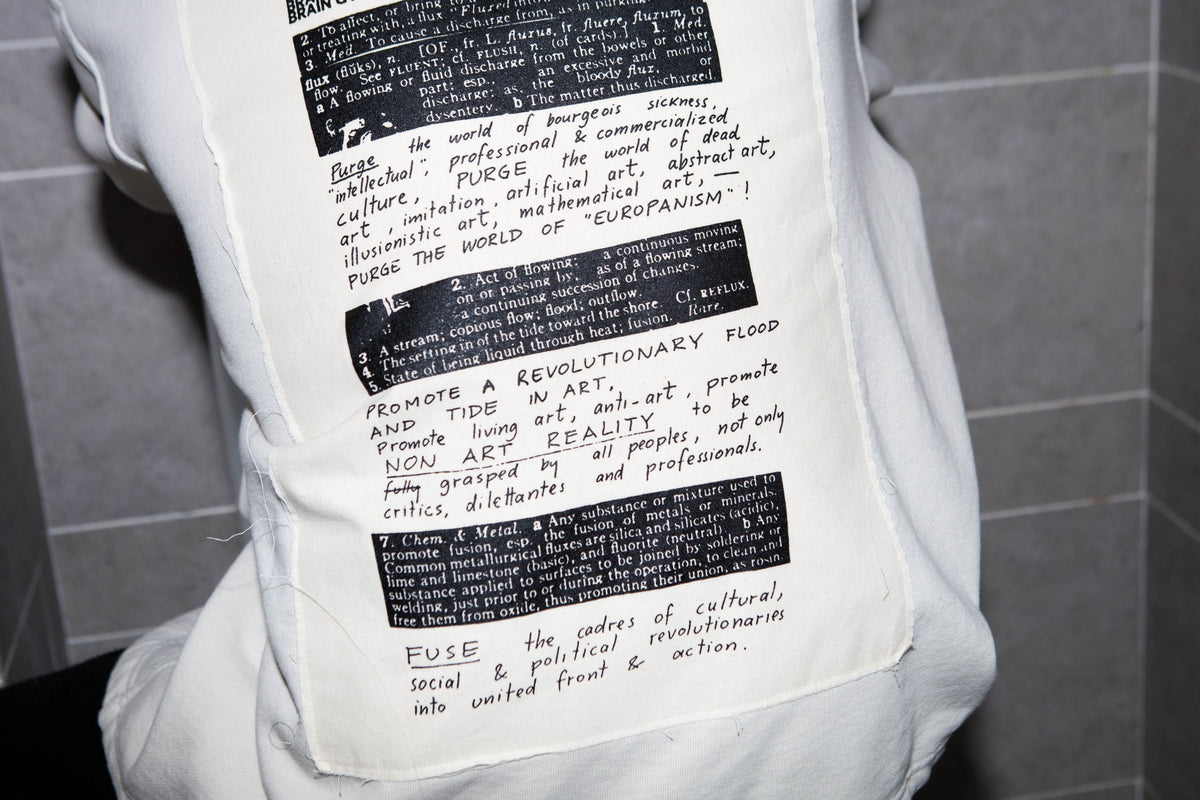 BRAIN
2. To affect, or bring to
or treating with, a flux. Fluxed into
3. Med. To cause a discharge from, as in purging.
flux (flŭks), n. [OF., fr. L. fluxus, fr. fluere, fluxum, to
flow. See FLUENT; cf. FLUSH, n. (of cards).] 1. Med.
a A flowing or fluid discharge from the bowels or other
part; esp., an excessive and morbid
discharge: as, the bloody flux, or
dysentery. b The matter thus discharged.
Purge the world of bourgeois sickness,
"intellectual", professional & commercialized
culture, PURGE the world of dead
art, imitation, artificial art, abstract art,
illusionistic art, mathematical art, —
PURGE THE WORLD OF "EUROPANISM"!
2. Act of flowing: a continuous moving
on or passing by, as of a flowing stream;
a continuing succession of changes.
3. A stream; copious flow; flood; outflow.
4. The setting in of the tide toward the shore. Cf. REFLUX.
5. State of being liquid through heat; fusion. Rare.
PROMOTE A REVOLUTIONARY FLOOD
AND TIDE IN ART,
Promote living art, anti-art, promote
NON ART REALITY to be
fully grasped by all peoples, not only
critics, dilettantes and professionals.
7. Chem. & Metal. a Any substance or mixture used to
promote fusion, esp. the fusion of metals or minerals.
Common metallurgical fluxes are silica and silicates (acidic),
lime and limestone (basic), and fluorite (neutral). b Any
substance applied to surfaces to be joined by soldering or
welding, just prior to or during the operation, to clean and
free them from oxide, thus promoting their union, as rosin.
FUSE the cadres of cultural,
social & political revolutionaries
into united front & action.